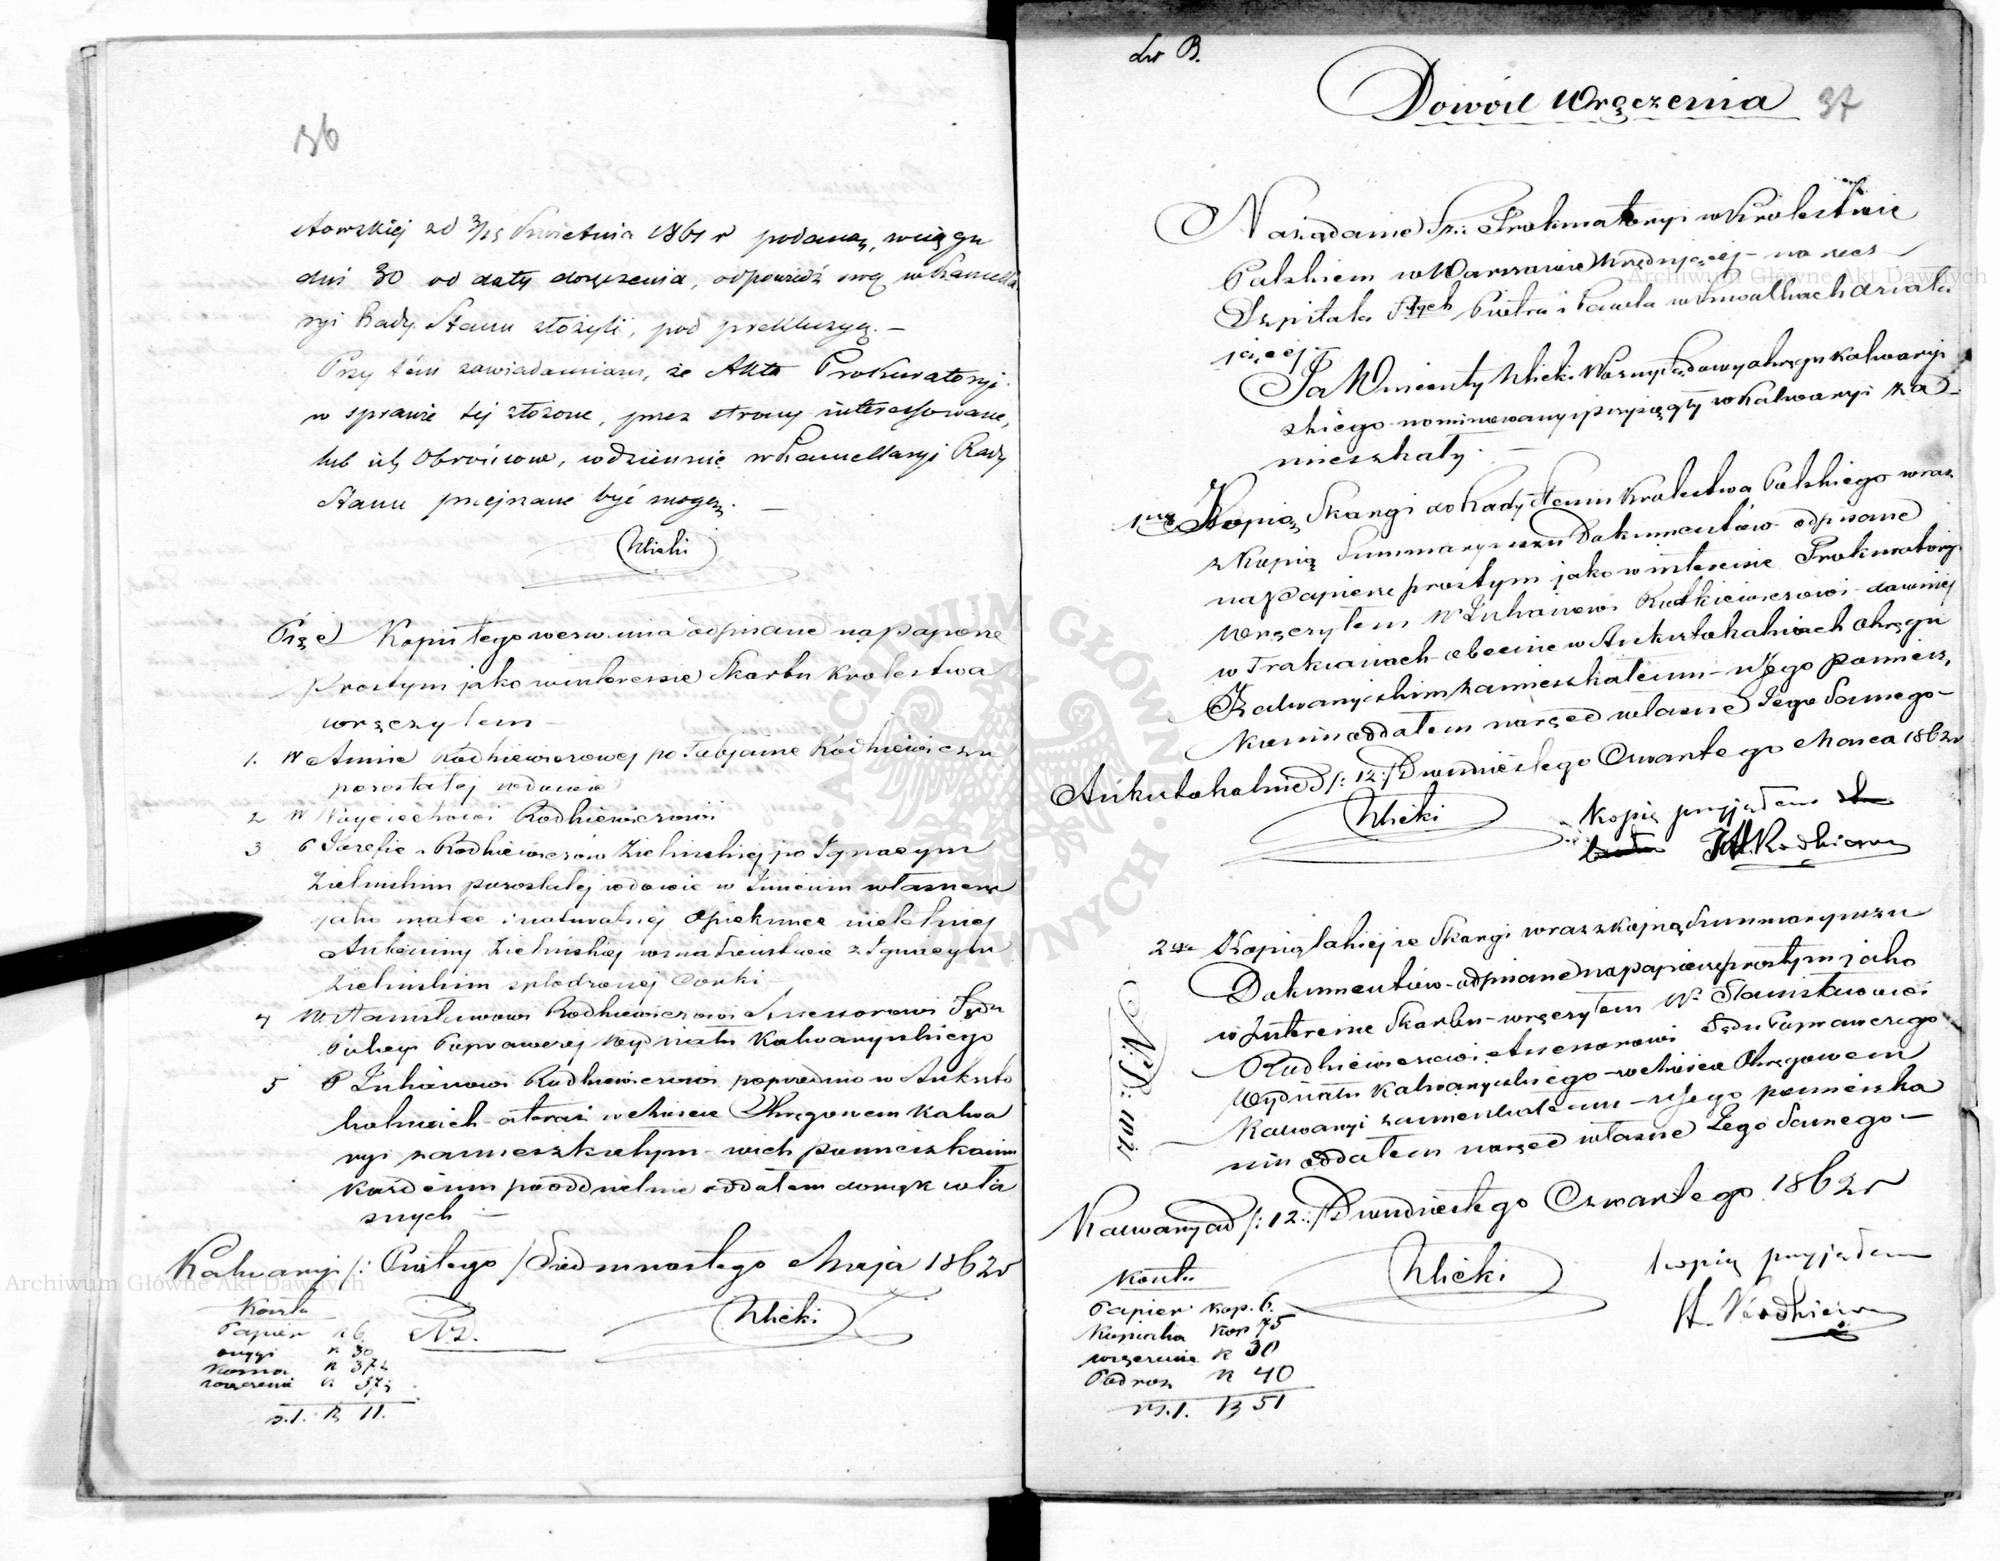 36
stowskiej zd 3/15 Kwietnia 1861 r podaną, w ciągu
dni 30 od daty doręczenia, odpowiedź swą w Kancella
ryi Rady Stanu złożyli, pod prekluzyą. —
Przytém zawiadamiam, że Akta Prokuratoryi
w sprawie tej złożone, przez strony interessowane,
lub ich Obrońców, codziennie w Kancellaryi Rady
Stanu przejrzane być mogą. —
Klicki
Pięć Kopii tego wezwania odpisane na papierze
prostym jako w interesie Skarbu Królestwa
wręczyłem —
1. W Annie Rodkiewiczowej po Fabjanie Rodkiewiczu
pozostałej wdowie
2 W Woyciechowi Rodkiewiczowi
3 P Józefie z Rodkiewiczów Zielinskiej po Ignacym
Zielinskim pozostałej wdowie w Imieniu własnem
jako matce i naturalnej Opiekunce nieletniej
Antoniny Zielińskiej w małżeństwie z Ignacym
Zielinskim spłodzonej Corki —
4 W Stanisławowi Rodkiewiczowi Assessorowi Sądu
Policyi Poprawczej Wydziału Kalwaryjskiego
5 P Juljanowi Rodkiewiczowi poprzednio w Ankszto
kalniach a teraz w mieście Okręgowem Kalwa
ryi zamieszkałym — w ich pomieszkaniu
każdemu pooddzielnie oddałem do rąk wła
snych —
Kalwarya /: Piątego / Siedmnastego Maja 1862 r
Koszta
Papier k 6
k 30
k 37½
wręczenie k 37½
r. 1. k 11.
Klicki
Lit B.
Dowód Wręczenia
37
Na żądanie Prokuratoryi w Królestwie
Polskiem w Warszawie Urzędującej — na rzecz
Szpitala Stych Piotra i Pawła w Suwałkach działa
jącej —
Ja Wincenty Klicki Woźny Sądowy okręgu Kalwaryj
skiego nominowany i przysięgły w Kalwaryi za
mieszkały. —
1ną Kopią Skargi do Rady Stanu Królestwa Polskiego wraz
z Kopią Summaryuszu Dokumentów odpisane
na papierze prostym jako w interesie Prokuratoryi
Wręczyłem W Juljanowi Rodkiewiczowi dawniej
w Trakianiach obecnie w Anksztokalniach Okręgu
Kalwaryjskim zamieszkałemu — w Jego pomiesz.
kaniu oddałem w ręce własne Jego Samego —
Anksztokalnie d /: 12 :/ Dwudziestego Czwartego Marca 1862 r
Klicki
Kopię przyjąłem
Rodkiewicz
2gą Kopią takiejże Skargi wraz z kopią Summaryuszu
Dokumentów odpisane na papierze prostym jako
w Interesie Skarbu — wręczyłem W Stanisławowi
Rodkiewiczowi Assessorowi Sądu Poprawczego
Wydziału Kalwaryjskiego — w mieście Okręgowem
Kalwaryi zamieszkałemu — w Jego pomieszka
niu oddałem w ręce własne Jego Samego —
Kalwarya d /: 12 :/ Dwudziestego Czwartego 1862 r
Klicki
kopię przyjąłem
Rodkiewicz
Koszta
Papier kop. 6.
Kopialia kop 75
wręczenie k 30
Podroż k 40
rs. 1. k 51
Archiwum Główne Akt Dawnych
Archiwum Główne Akt Dawnych
ARCHIWUM GŁÓWNE AKT DAWNYCH